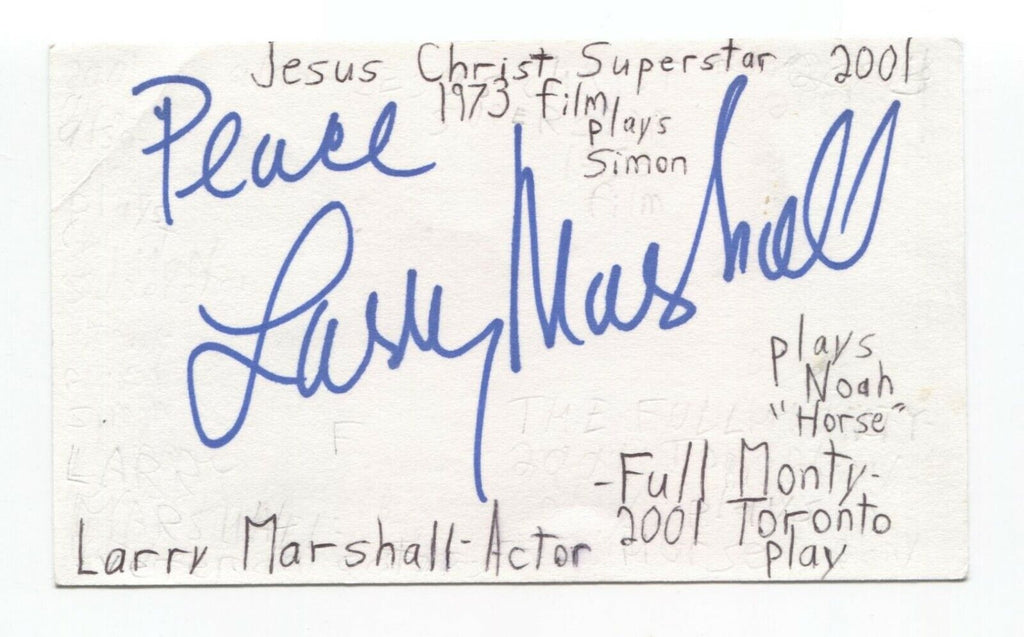 Jesus Christ Superstar 2001
1973 film
plays
Simon
Peace
Larry Marshall
plays
Noah
"Horse"
-Full Monty-
2001 Toronto
play
Larry Marshall-Actor